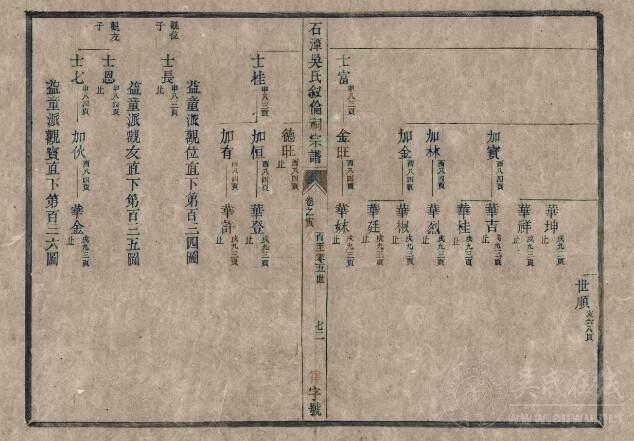 世順 亥六八頁
華坤 戌九二頁 止
華祥 戌九二頁 止
加寶 酉八四頁
華吉 戌九三頁 止
華桂 戌九三頁 止
加林 酉八四頁
華烈 戌九三頁 止
加金 酉八四頁
華椒 戌九三頁 止
華廷 戌九三頁 止
士富 申八三頁
金旺 酉八四頁
華妹 戌九三頁 止
石潭吳氏敘倫祠宗譜
卷之寅
七二
字號
德旺 酉八四頁 止
士桂 申八三頁
加恒 酉八四頁
華登 戌九三頁 止
加有 酉八四頁
華計 戌九三頁 止
益童派觀位直下第百三四圖
觀位子
士長 申八三頁 止
益童派觀友直下第百三五圖
觀友子
士恩 申八四頁 止
士七 申八四頁
加伙 酉八四頁
華金 戌九三頁 止
益童派觀寶直下第百三六圖
www.cnwu.net